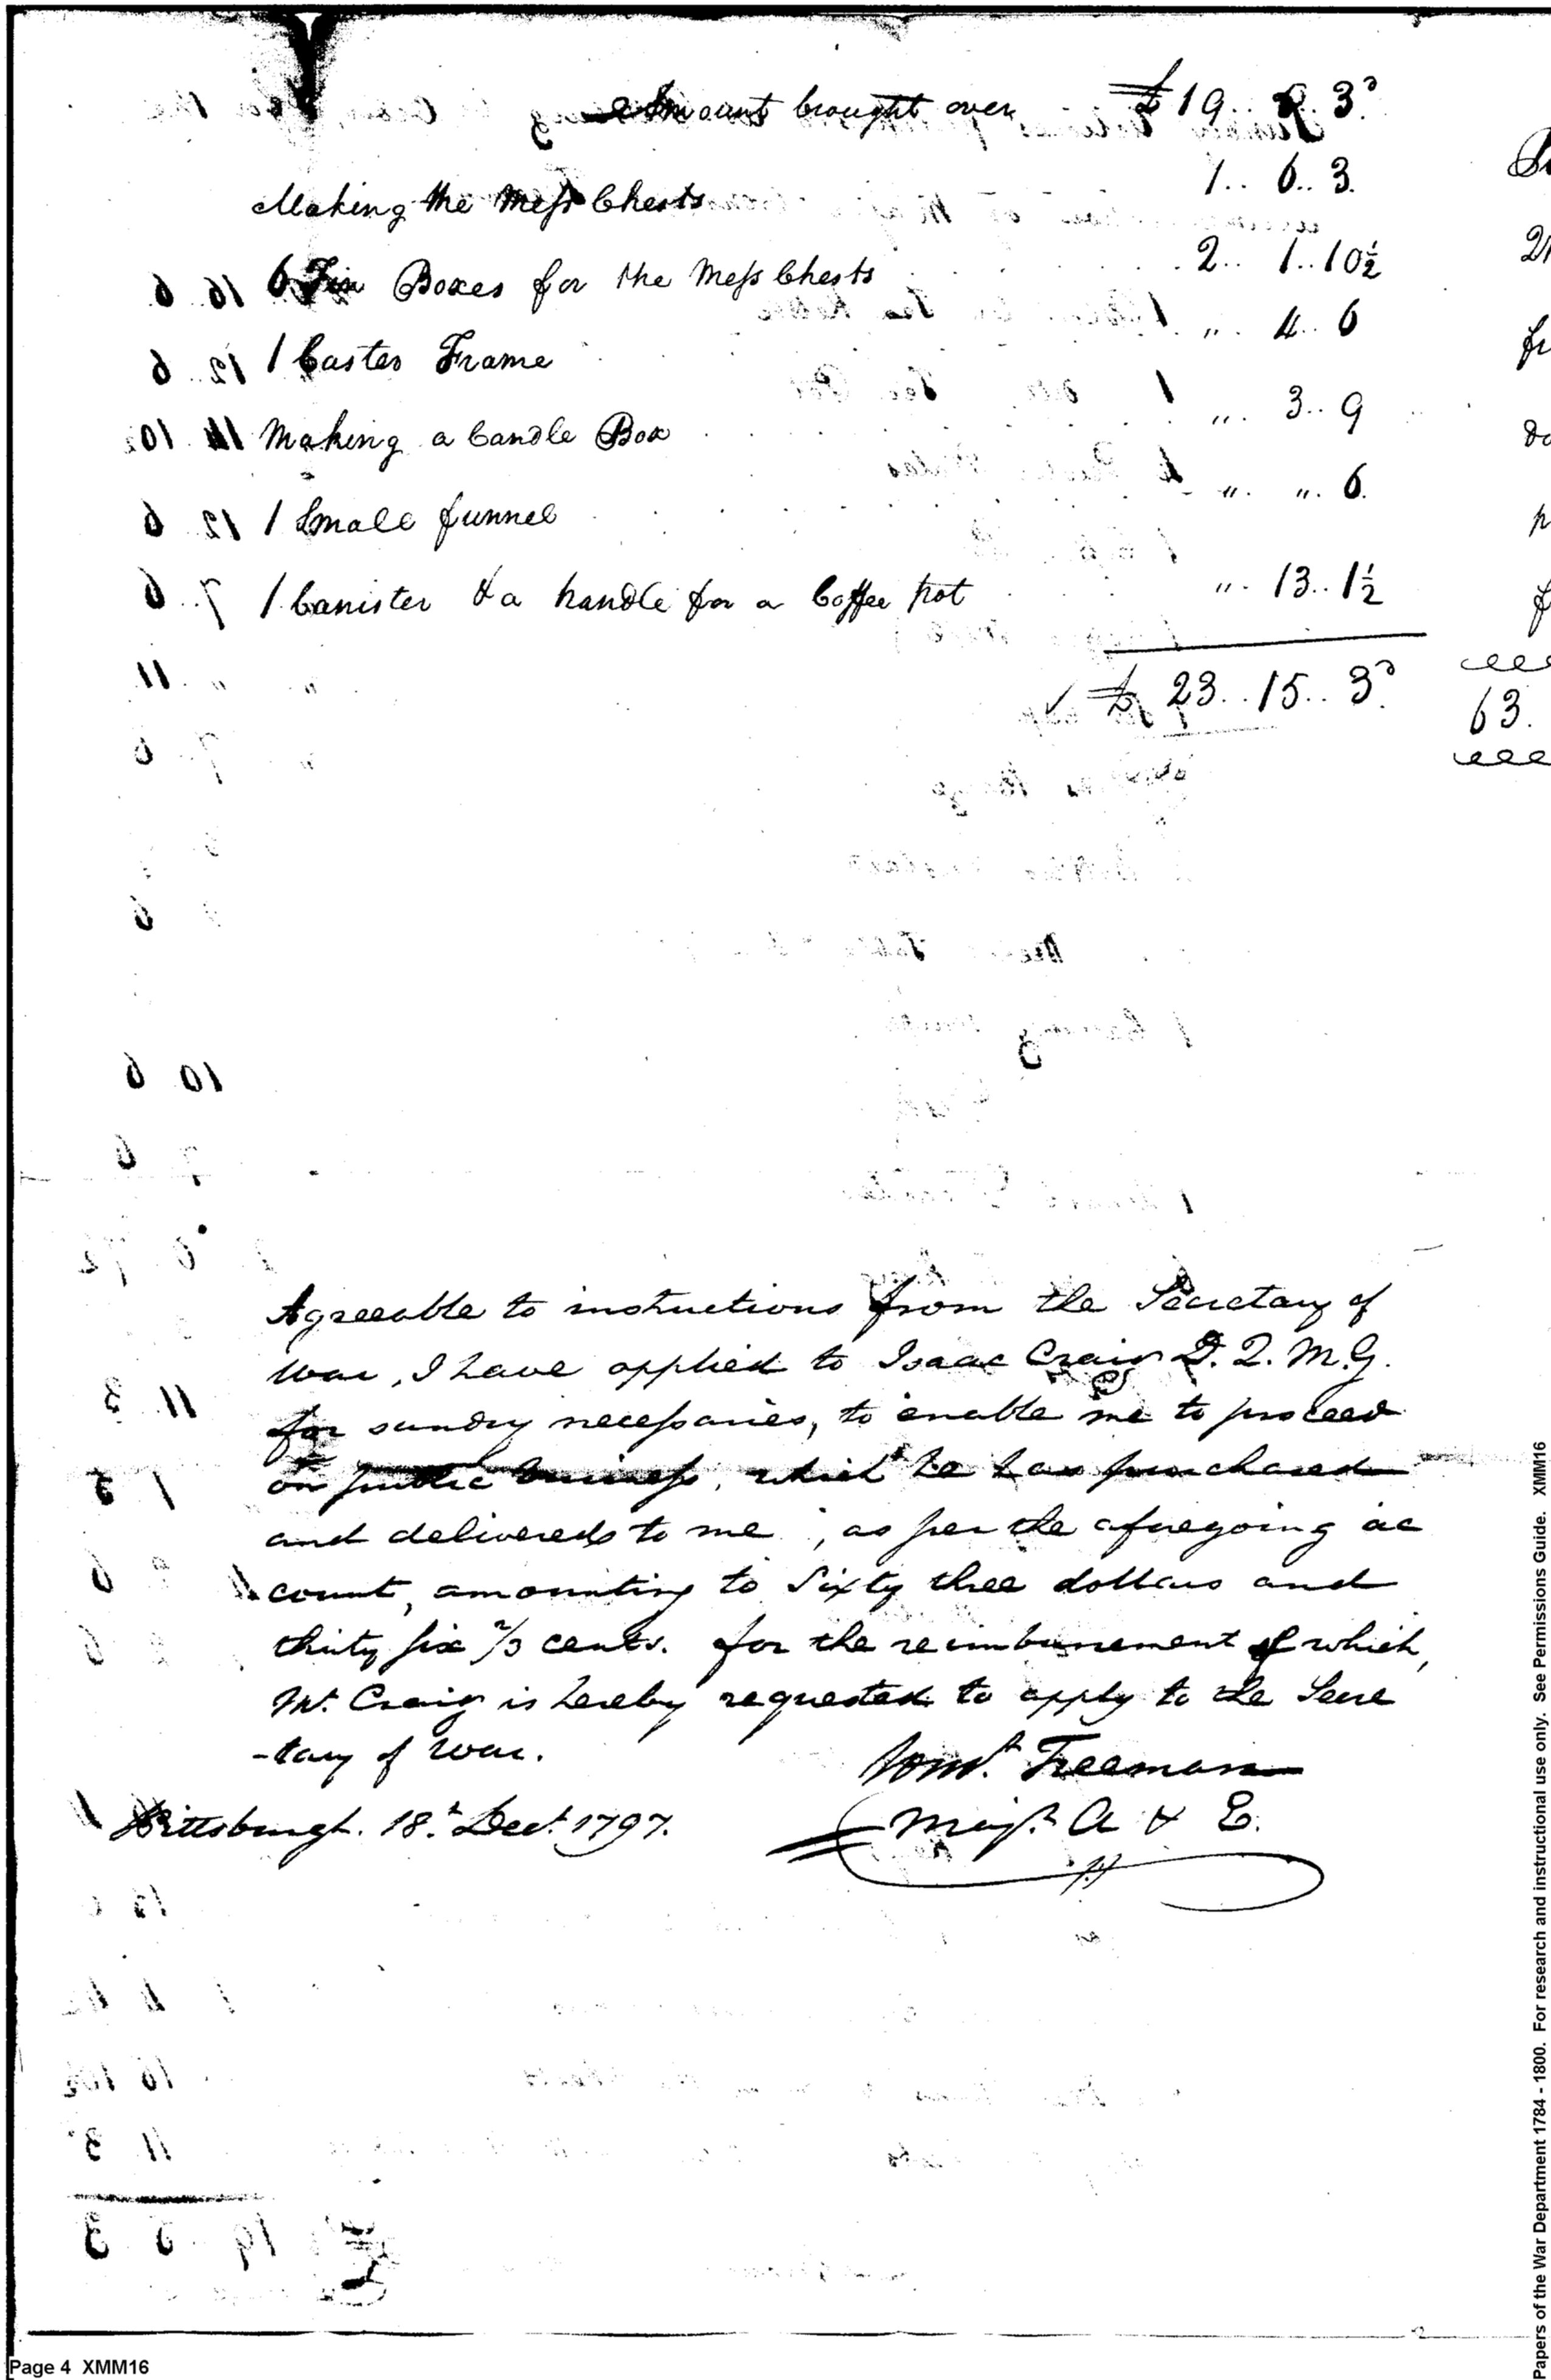 Amount brought over £ 19.. 5.. 3
Making the Mess Chests 1.. 6.. 3.
6 Tin Boxes for the Mess Chests 2.. 1.. 10½
1 Caster Frame ,, 4.. 6
Making a Candle Box ,, 3.. 9
1 Small funnel ,, ,, 6.
1 Canister & a handle for a Coffee pot ,, 13.. 1½
£ 23.. 15.. 3
63.
Agreeable to instructions from the Secretary of
War, I have applied to Isaac Craig D.Q.M.G.
for sundry necessaries, to enable me to proceed
on public business, which he has purchased
and delivered to me, as per the aforegoing ac
count, amounting to Sixty three dollars and
thirty six 2/3 cents. for the reimbursement of which,
Mr. Craig is hereby requested to apply to the Secre
-tary of War.
Jonn. Freeman
Majr. A & E.
Pittsburgh. 18th. Decr. 1797.
Page 4 XMM16
Papers of the War Department 1784 - 1800. For research and instructional use only. See Permissions Guide. XMM16